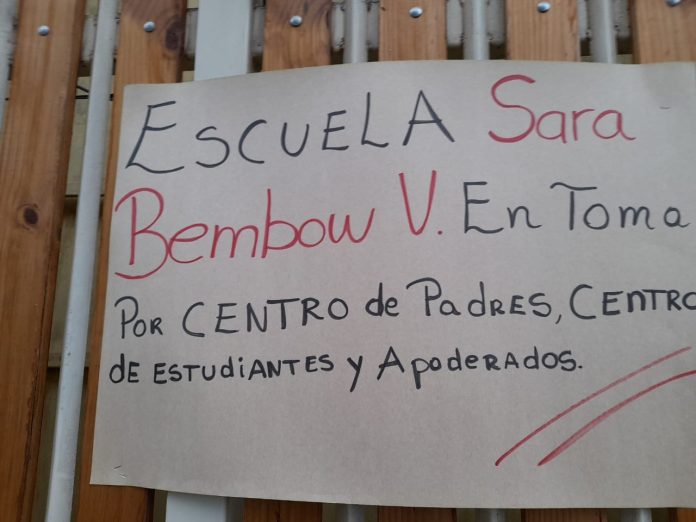 ESCUELA Sara
Bembow V. En Toma
POR CENTRO de PadRES, CENTRO
dE ESTUdiANTES y ApodERAdos.